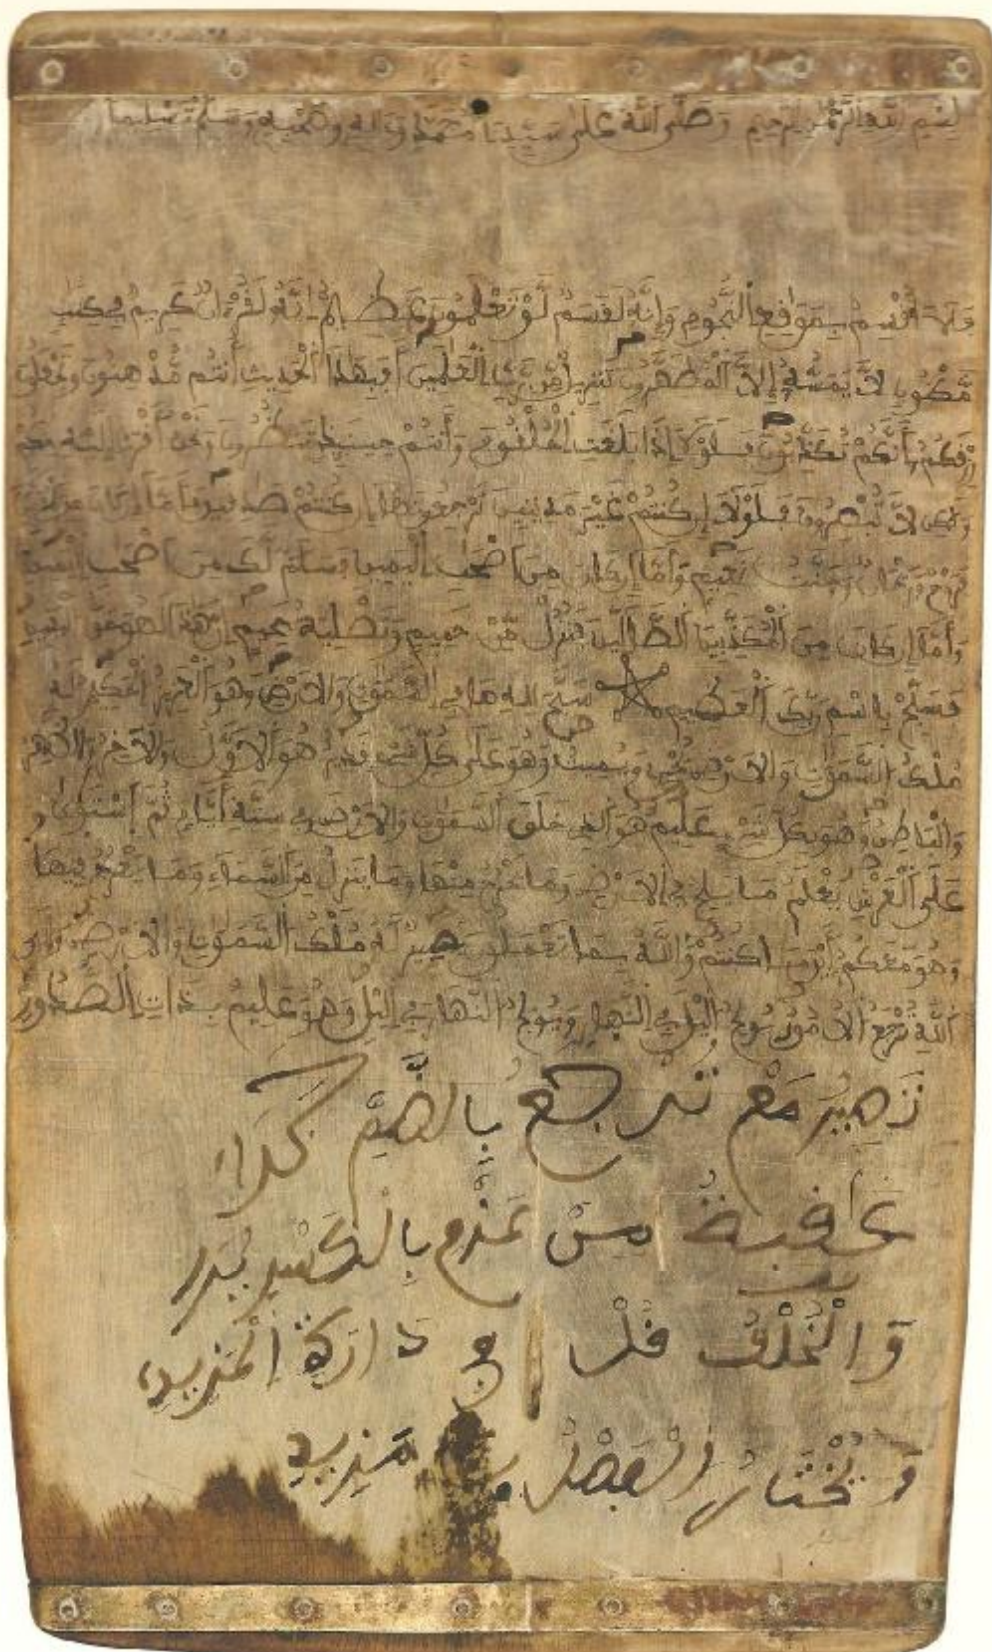 بسم الله الرحمن الرحيم وصلى الله على سيدنا محمد وءاله وصحبه وسلم تسليما
فلا أقسم بمواقع النجوم وإنه لقسم لو تعلمون عظيم إنه لقرءان كريم في كتب
مكنون لا يمسه إلا المطهرون تنزيل من رب العلمين أفبهذا الحديث أنتم مدهنون وتجعلون
رزقكم أنكم تكذبون فلولا إذا بلغت الحلقوم وأنتم حينئذ تنظرون ونحن أقرب إليه منكم
ولكن لا تبصرون فلولا إن كنتم غير مدينين ترجعونها إن كنتم صدقين فأما إن كان من
فروح وريحان وجنت نعيم وأما إن كان من أصحب اليمين فسلم لك من أصحب اليمين
وأما إن كان من المكذبين الضالين فنزل من حميم وتصلية جحيم إن هذا لهو حق اليقين
فسبح باسم ربك العظيم سبح لله ما في السموت والارض وهو العزيز الحكيم له
ملك السموت والارض يحي ويميت وهو على كل شيء قدير هو الاول والاخر والظهر
والباطن وهو بكل شيء عليم هو الذي خلق السموت والارض في ستة أيام ثم استوى
على العرش يعلم ما يلج في الارض وما يخرج منها وما ينزل من السماء وما يعرج فيها
وهو معكم أين ما كنتم والله بما تعملون بصير له ملك السموت والارض وإلى
الله ترجع الامور يولج اليل في النهار ويولج النهار في اليل وهو عليم بذات الصدور
مع بالضم كذا
عاقبة من بالكسر
والخلف دارة المزيد
الفصل مزيد